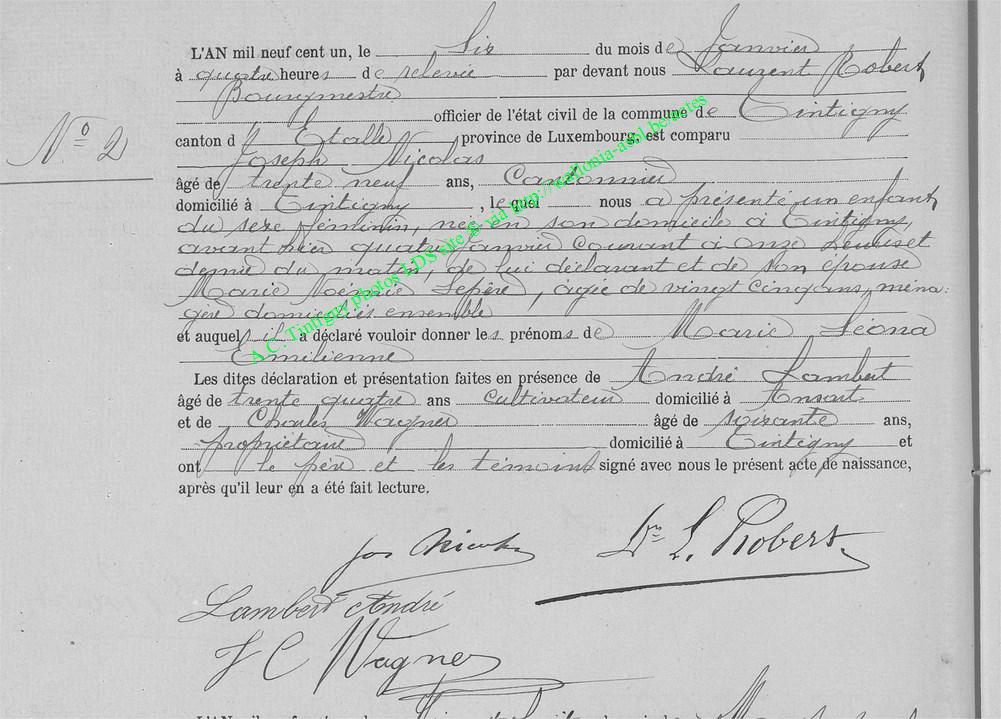 L'AN mil neuf cent un, le Six du mois de Janvier
à quatre heures de relevée par devant nous Laurent Robert,
Bourgmestre
officier de l'état civil de la commune de Tintigny
N° 2
canton d' Etalle, province de Luxembourg, est comparu
Joseph Nicolas
âgé de trente neuf ans, Cantonnier
domicilié à Tintigny, lequel nous a présenté un enfant
du sexe féminin, née en son domicile à Tintigny,
avant hier quatre Janvier courant à onze heures et
demie du matin, de lui déclarant et de son épouse
Marie Lefèvre, âgée de vingt cinq ans, ména-
gère domiciliés ensemble
et auquel il a déclaré vouloir donner les prénoms de Marie Léona
Emilienne
Les dites déclaration et présentation faites en présence de André Lambert
âgé de trente quatre ans Cultivateur domicilié à Ansart
et de Charles Wagner âgé de soixante ans,
propriétaire domicilié à Tintigny et
ont le père et les témoins signé avec nous le présent acte de naissance,
après qu'il leur en a été fait lecture.
A.C. Tintigny photos LDS site & via http://wallonia-asbl.be/actes
Jos Nicolas
Dr L. Robert
Lambert André
J C Wagner